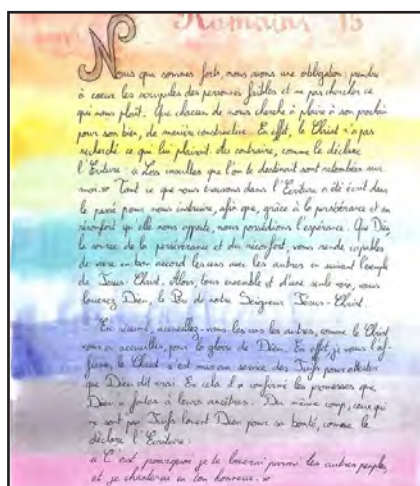 Romains 15
Nous qui sommes forts, nous avons une obligation : prendre
à coeur les scrupules des personnes faibles et ne pas chercher ce
qui nous plaît. Que chacun de nous cherche à plaire à son prochain
pour son bien, de manière constructive. En effet, le Christ n'a pas
recherché ce qui lui plaisait. Au contraire, comme le déclare
l'Ecriture : « Les insultes que l'on te destinait sont retombées sur
moi. » Tout ce que nous trouvons dans l'Ecriture a été écrit dans
le passé pour nous instruire, afin que, grâce à la persévérance et au
réconfort qu'elle nous apporte, nous possédions l'espérance. Que Dieu,
la source de la persévérance et du réconfort, vous rende capables
de vivre en bon accord les uns avec les autres en suivant l'exemple
de Jésus-Christ. Alors, tous ensemble et d'une seule voix, vous
louerez Dieu, le Père de notre Seigneur Jésus-Christ.
En résumé, accueillez-vous les uns les autres, comme le Christ
vous a accueillis, pour la gloire de Dieu. En effet, je vous l'af-
firme, le Christ s'est mis au service des Juifs pour attester
que Dieu dit vrai. En cela il a confirmé les promesses que
Dieu a faites à leurs ancêtres. Du même coup, ceux qui
ne sont pas Juifs louent Dieu pour sa bonté, comme le
déclare l'Ecriture :
« C'est pourquoi je te louerai parmi les autres peuples,
et je chanterai en ton honneur. »